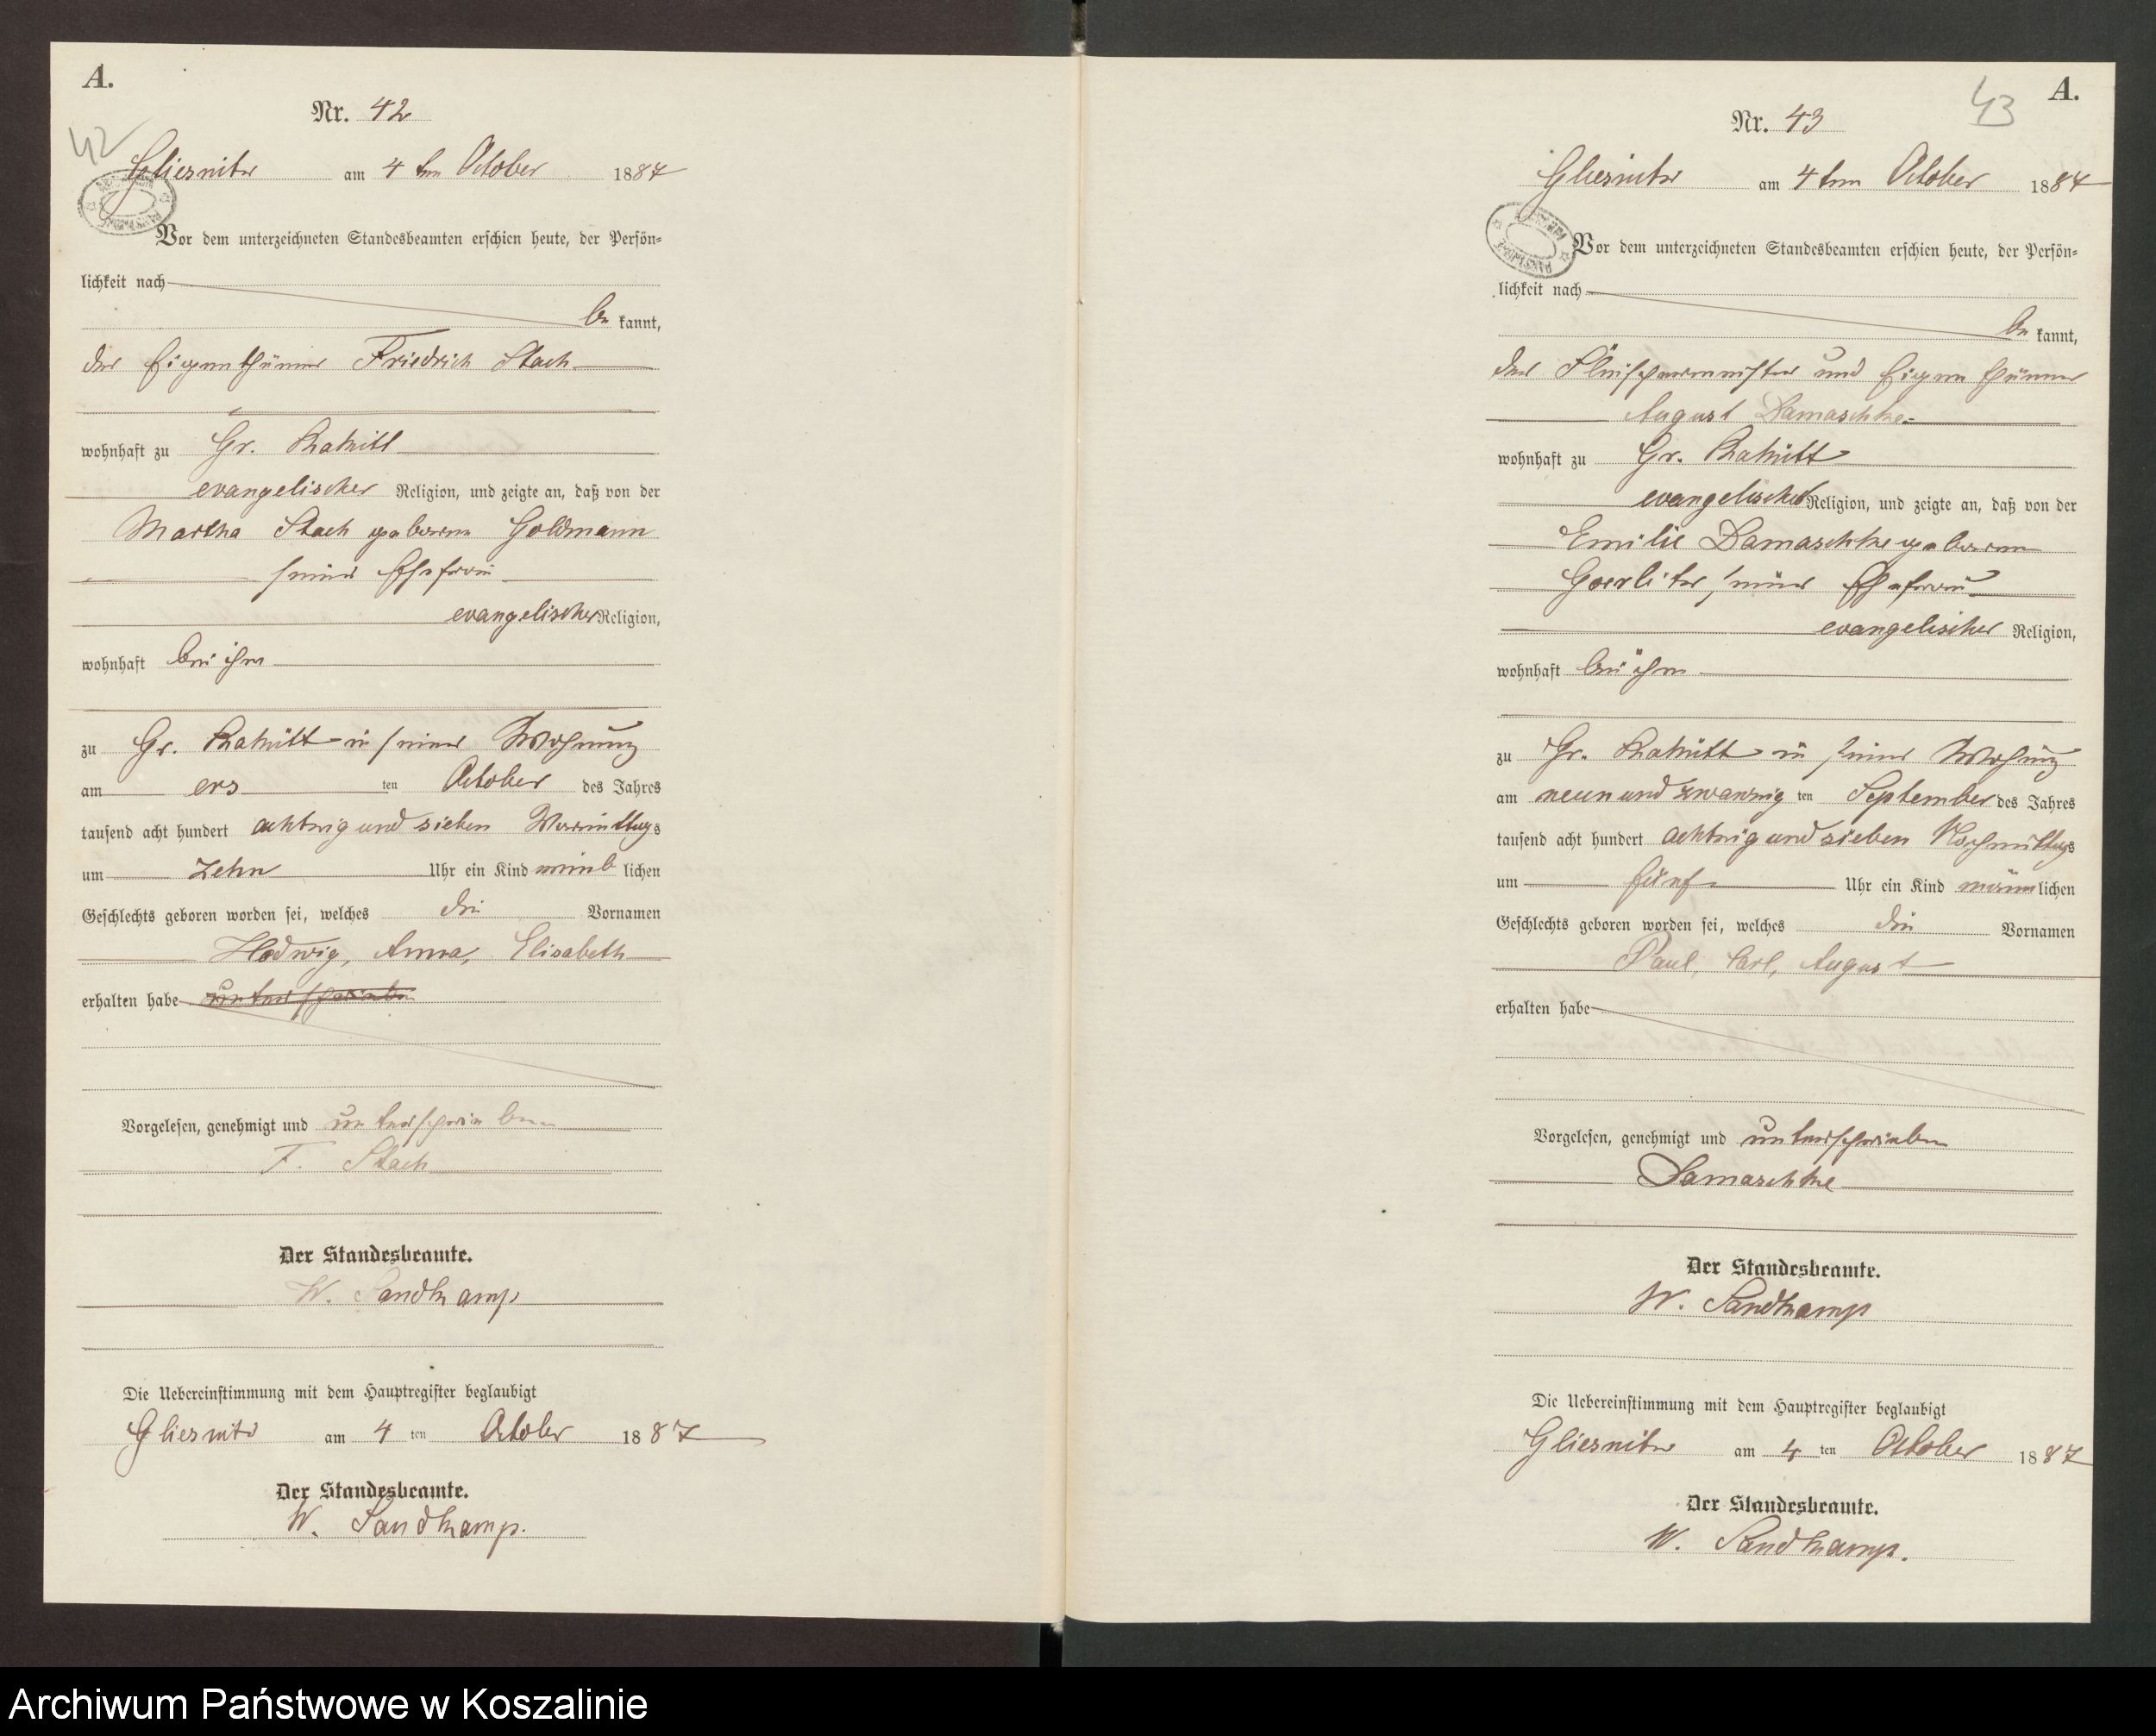 A.
Nr. 42
42
Gliesnitz am 4 ten October 1887
Vor dem unterzeichneten Standesbeamten erschien heute, der Persön-
lichkeit nach
be kannt,
der Eigenthümer Friedrich Stach
wohnhaft zu Gr. Rakitt
evangelischer Religion, und zeigte an, daß von der
Martha Stach geborene Goldmann
seiner Ehefrau
evangelischer Religion,
wohnhaft bei ihm
zu Gr. Rakitt in seiner Wohnung
am ers ten October des Jahres
tausend acht hundert achtzig und sieben Vormittags
um Zehn Uhr ein Kind weib lichen
Geschlechts geboren worden sei, welches die Vornamen
Hedwig, Anna, Elisabeth
erhalten habe unterschrieben
Vorgelesen, genehmigt und unterschrieben
F. Stach
Der Standesbeamte.
W. Sandkamp
Die Uebereinstimmung mit dem Hauptregister beglaubigt
Gliesnitz am 4 ten October 1887
Der Standesbeamte.
W. Sandkamp.
A.
43
Nr. 43
Gliesnitz am 4 ten October 1887
Vor dem unterzeichneten Standesbeamten erschien heute, der Persön-
lichkeit nach
be kannt,
der Fleischermeister und Eigenthümer
August Damaschke
wohnhaft zu Gr. Rakitt
evangelischer Religion, und zeigte an, daß von der
Emilie Damaschke geborene
Goerlitz, seiner Ehefrau
evangelischer Religion,
wohnhaft bei ihm
zu Gr. Rakitt in seiner Wohnung
am neun und zwanzig ten September des Jahres
tausend acht hundert achtzig und sieben Nachmittags
um fünf Uhr ein Kind männ lichen
Geschlechts geboren worden sei, welches die Vornamen
Paul, Carl, August
erhalten habe
Vorgelesen, genehmigt und unterschrieben
Damaschke
Der Standesbeamte.
W. Sandkamp
Die Uebereinstimmung mit dem Hauptregister beglaubigt
Gliesnitz am 4 ten October 1887
Der Standesbeamte.
W. Sandkamp.
Archiwum Państwowe w Koszalinie